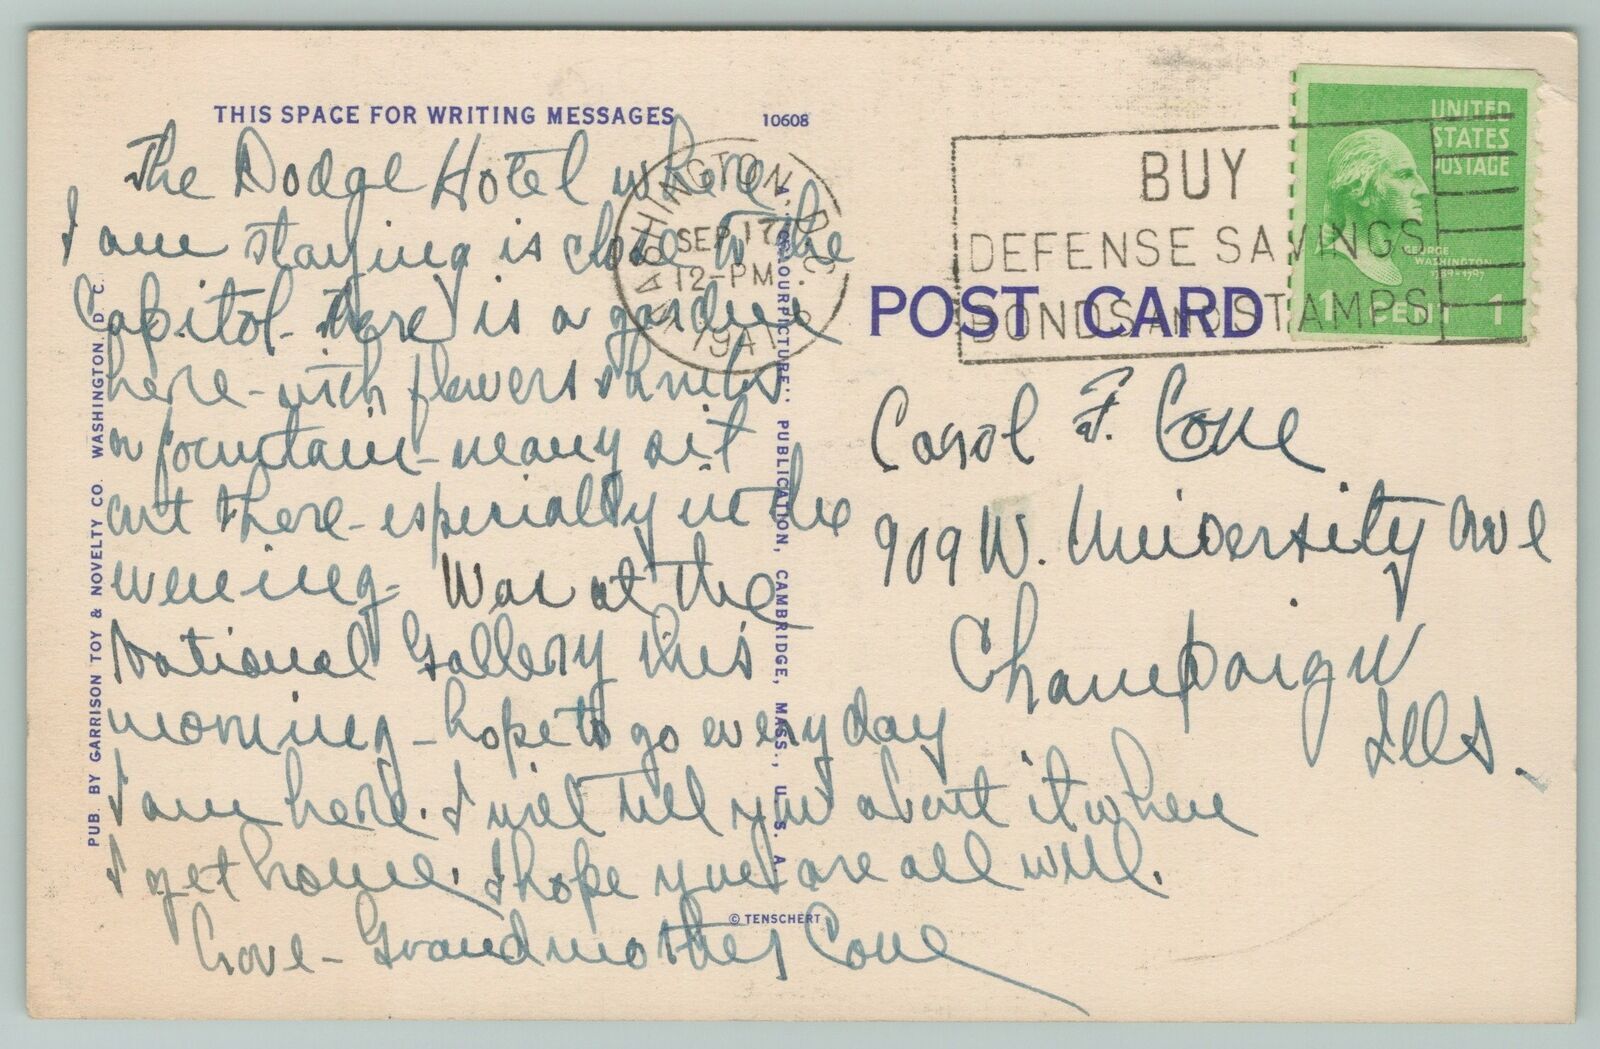 THIS SPACE FOR WRITING MESSAGES
10608
The Dodge Hotel where
I am staying is close to the
Capitol. There is a garden
here - with flowers shrubs
a fountain - many sit
out there - especially in the
evening - Was at the
National Gallery this
morning - hope to go every day
I am here. I will tell you about it when
I get home. I hope you are all well.
Love - Grandmother Cone
PUB. BY GARRISON TOY & NOVELTY CO. WASHINGTON, D. C.
COLOURPICTURE" PUBLICATION, CAMBRIDGE, MASS., U. S. A.
© TENSCHERT
WASHINGTON, D.C.
SEP 17
12-PM
1941
BUY
DEFENSE SAVINGS
BONDS AND STAMPS
UNITED
STATES
POSTAGE
GEORGE
WASHINGTON
1789-1797
1 CENT 1
POST CARD
Carol F. Cone
909 W. University Ave
Champaign
Ills.